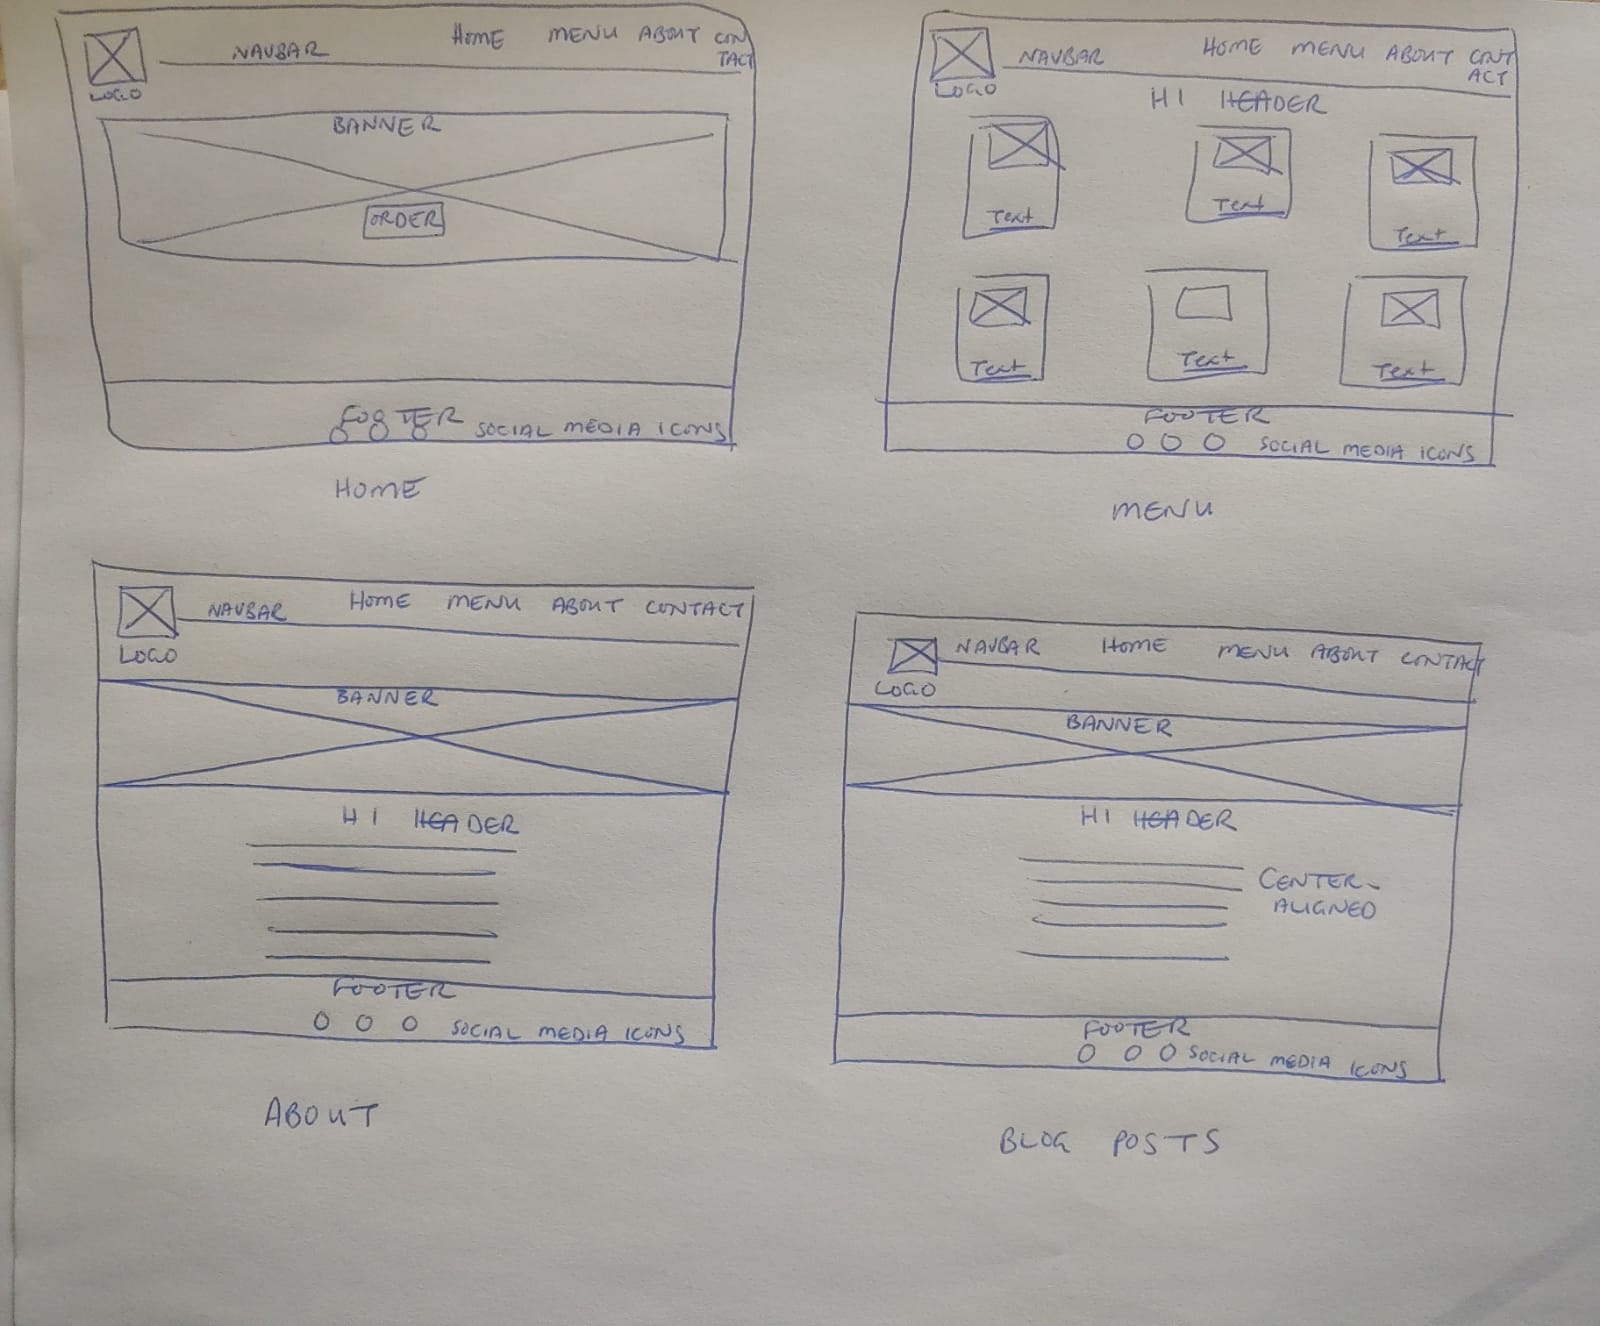 NAVBAR HOME MENU ABOUT CON
TACT
LOGO
BANNER
ORDER
FOOTER
SOCIAL MEDIA ICONS
HOME
NAVBAR HOME MENU ABOUT CONT
ACT
LOGO
H1 HEADER
Text Text Text
Text Text Text
FOOTER
SOCIAL MEDIA ICONS
MENU
NAVBAR HOME MENU ABOUT CONTACT
LOGO
BANNER
H1 HEADER
FOOTER
SOCIAL MEDIA ICONS
ABOUT
NAVBAR HOME MENU ABOUT CONTACT
LOGO
BANNER
H1 HEADER
CENTER-
ALIGNED
FOOTER
SOCIAL MEDIA ICONS
BLOG POSTS